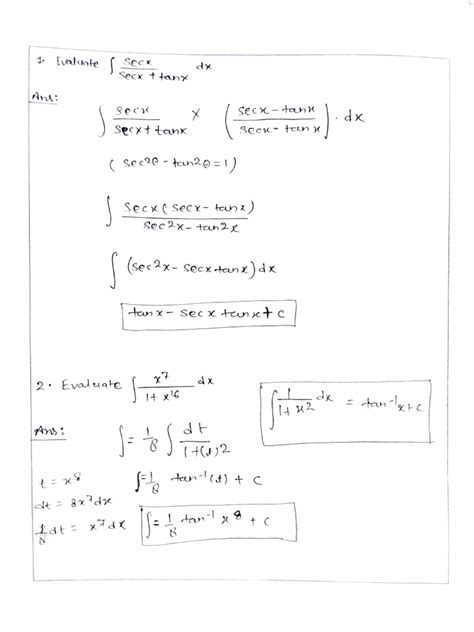 1. Evaluate ∫ secx / (secx + tanx) dx
Ans:
∫ secx / (secx + tanx) × ( (secx − tanx) / (secx − tanx) ) . dx
( sec2θ − tan2θ = 1 )
∫ secx ( secx − tanx ) / (sec2x − tan2x)
∫ (sec2x − secx tanx) dx
tanx − secx tanx + c
2. Evaluate ∫ x^7 / (1 + x^16) dx
∫ 1 / (1 + x2) dx = tan^-1 x + c
Ans:
∫ = 1/8 ∫ dt / (1 + (t)2)
t = x^8
∫ = 1/8 tan^-1 (t) + c
dt = 8x^7 dx
1/8 dt = x^7 dx
∫ = 1/8 tan^-1 x^8 + c